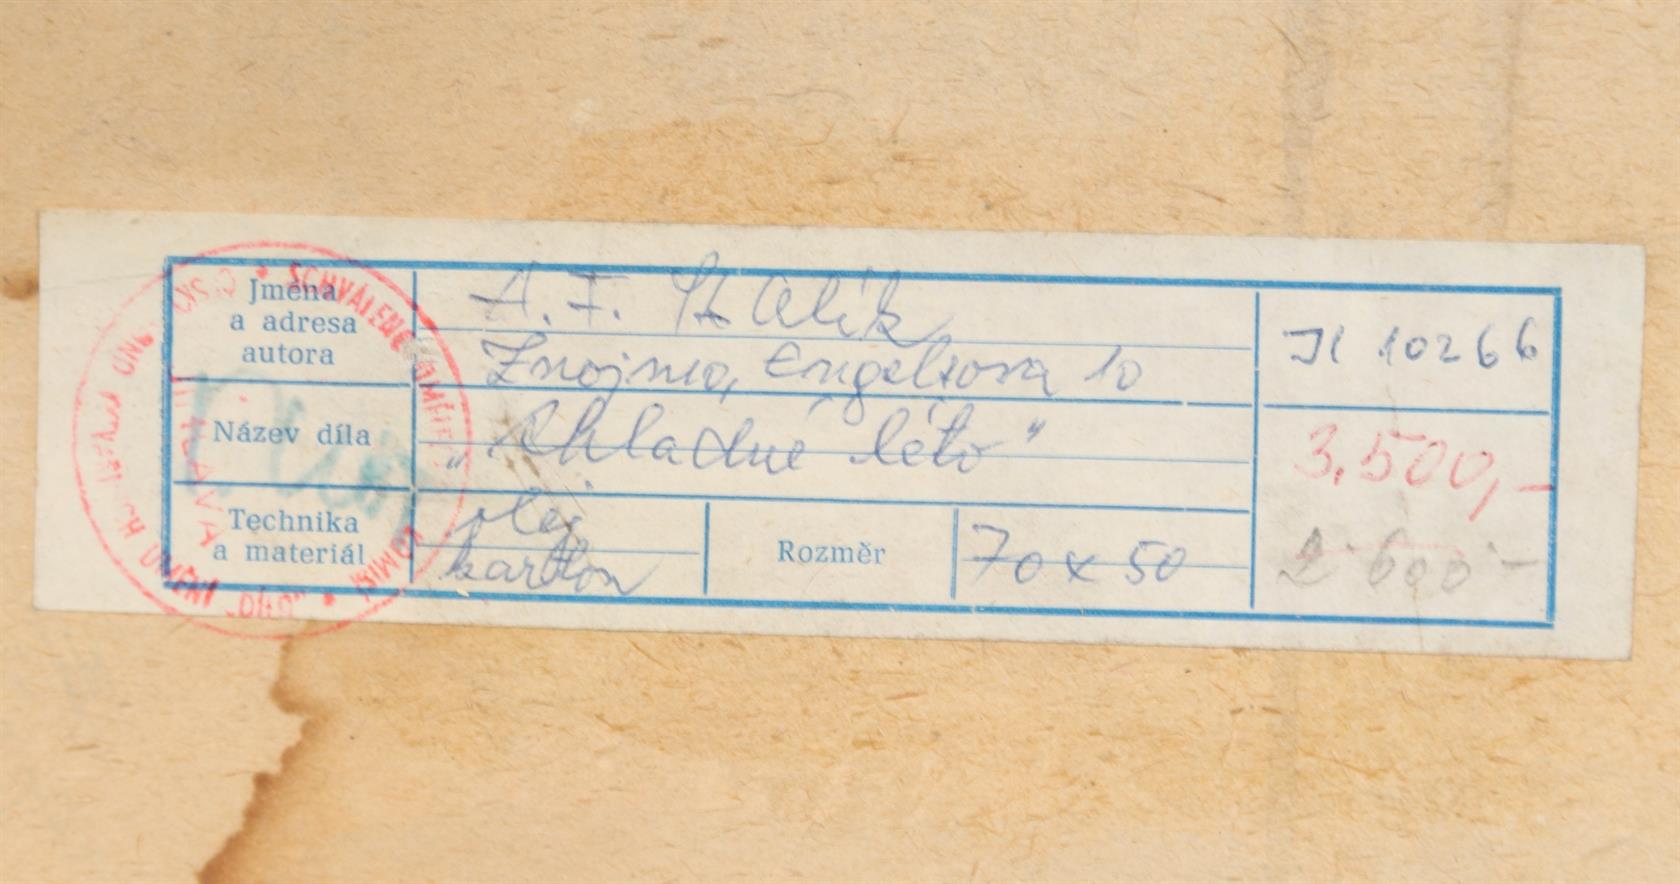 Jména
a adresa
autora
A. F. Stalík
Znojmo, Engelsova 10
JI 10266
Název díla
„Chladné léto“
3.500,-
Technika
a materiál
olej
kartton
Rozměr
70 x 50
2 600 -
SCHVÁLENO
KOMISÍ
"DÍLO"
UMĚNÍ
JIHLAVA